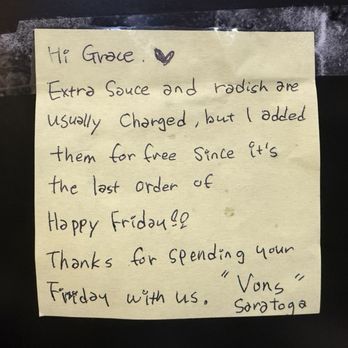 Hi Grace. ♥
Extra Sauce and radish are
usually charged, but I added
them for free since it's
the last order of
Happy Friday!!
Thanks for spending your
Friday with us. "Vons"
Saratoga